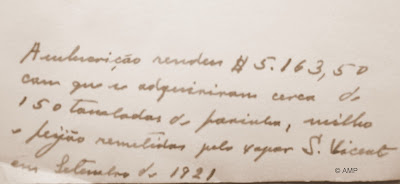 A subscrição rendeu $ 5.163,50
com que se adquiriram cerca de
150 toneladas de farinha, milho
e feijão remetidas pelo vapor S. Vicent
em Setembro de 1921
© AMP